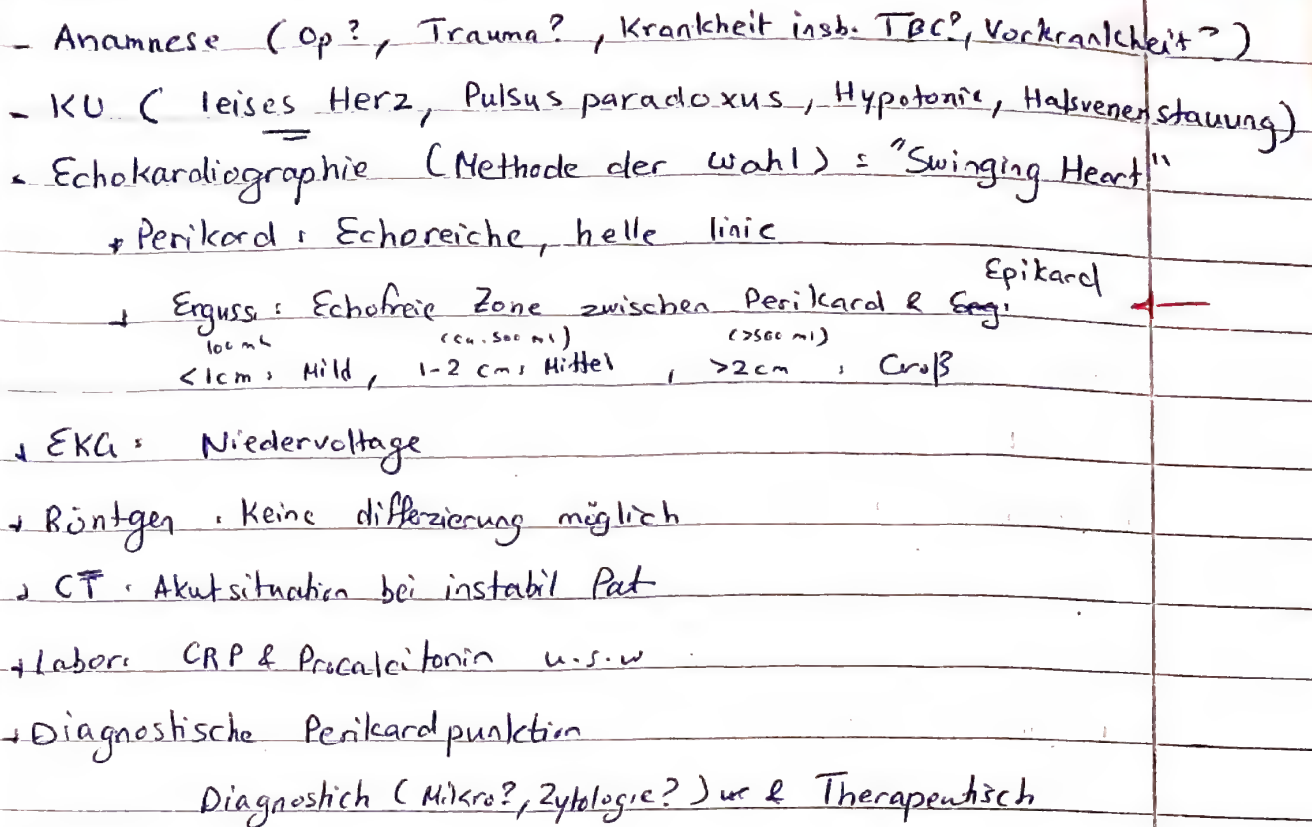 - Anamnese (Op?, Trauma?, Krankheit insb. TBC?, Vorkrankheit?)
- KU ( leises Herz, Pulsus paradoxus, Hypotonie, Halsvenenstauung)
- Echokardiographie (Methode der wahl) : "Swinging Heart"
Perikard : Echoreiche, helle linie
Epikard
Erguss : Echofreie Zone zwischen Perikard &
100 ml (ca. 500 ml) (>500 ml)
<1cm : Mild, 1-2 cm : Mittel, >2cm : Groß
EKG : Niedervoltage
Röntgen : Keine differzierung möglich
CT : Akutsituation bei instabil Pat
Labor: CRP & Procalcitonin u.s.w
Diagnostische Perikardpunktion
Diagnostich (Mikro?, Zytologie?) & Therapeutisch